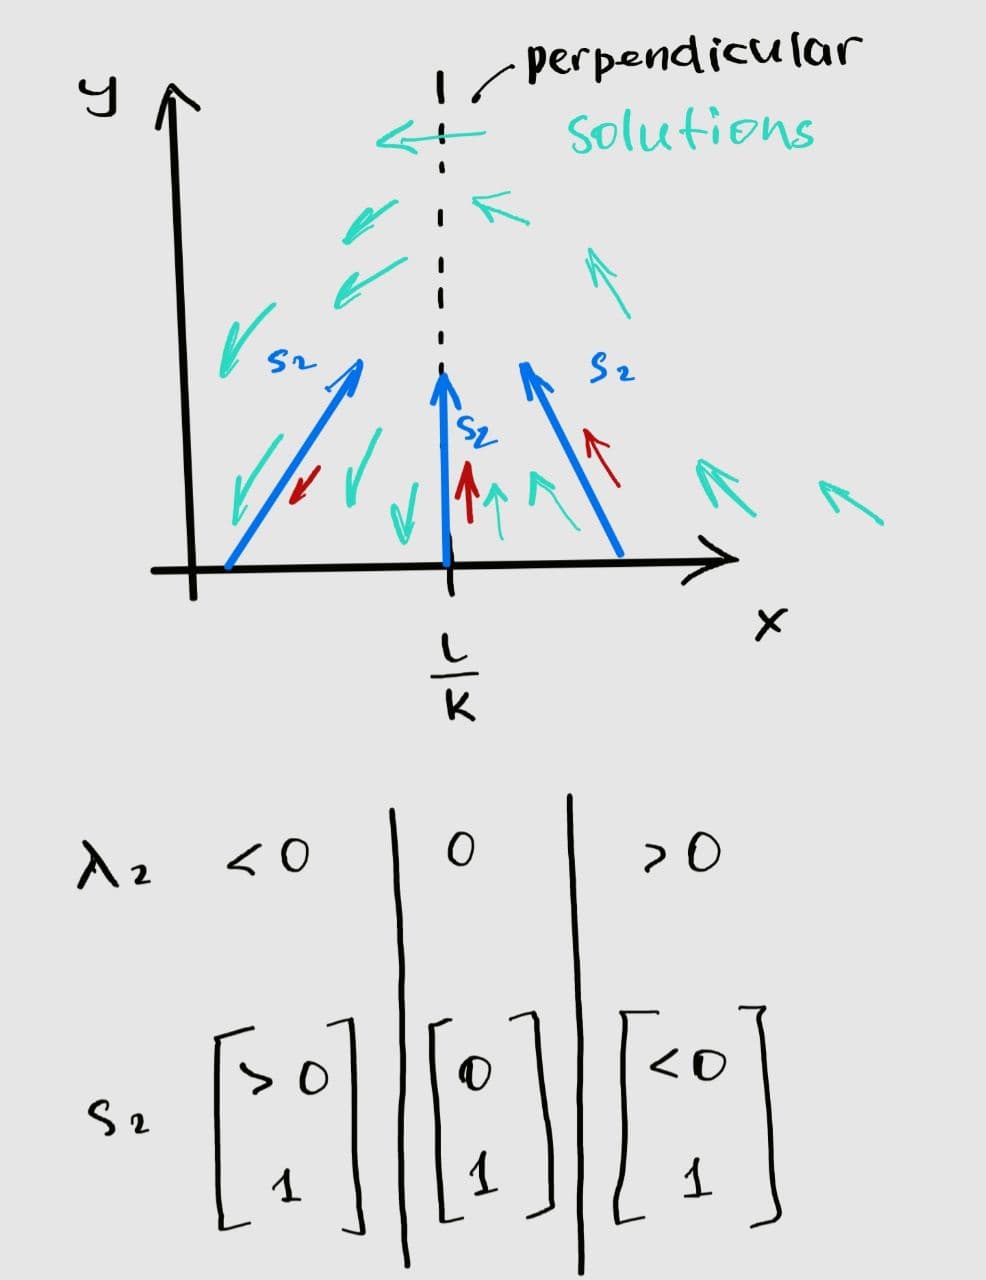 perpendicular
y
solutions
S2
S2
S2
x
L
K
λ2 < 0 0 > 0
> 0 0 < 0
S2
1 1 1